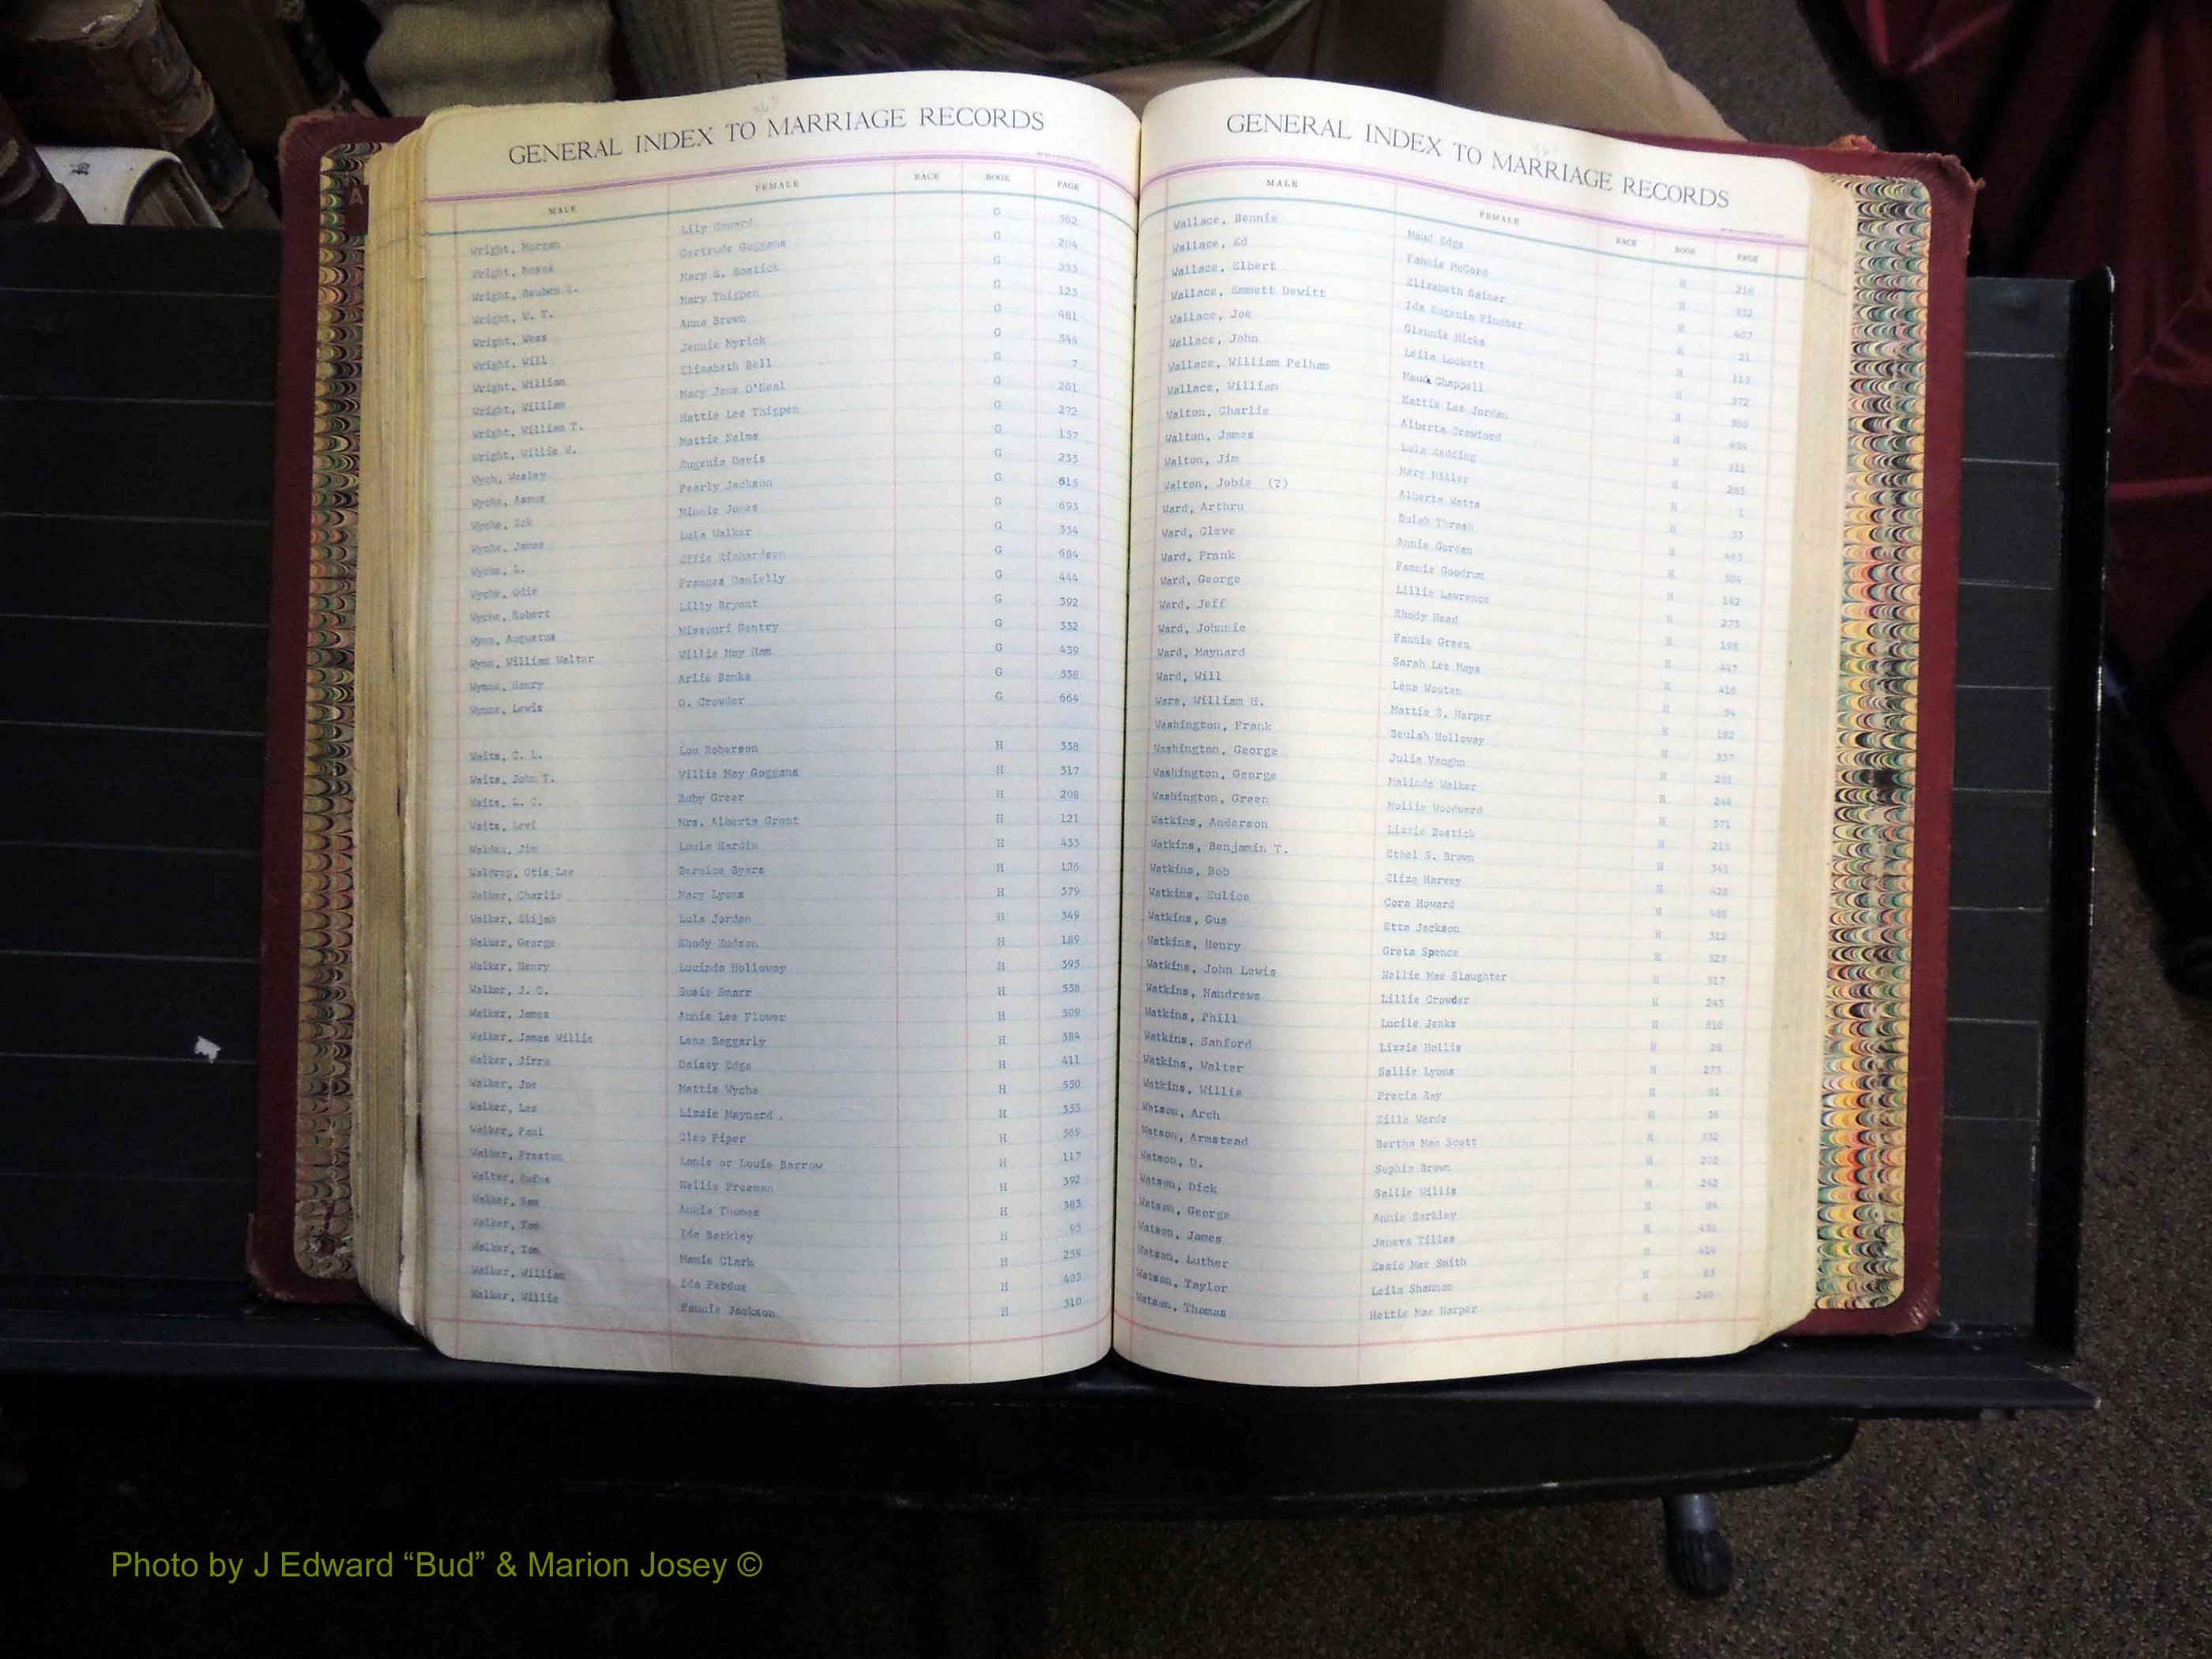 GENERAL INDEX TO MARRIAGE RECORDS
MALE FEMALE RACE BOOK PAGE
Wright, Morgan Lily Howard G 562
Wright, Moses Gertrude Goggans G 204
Wright, Reuben E. Mary E. Bostick G 333
Wright, W. T. Mary Thigpen G 123
Wright, Wess Anna Brown G 481
Wright, Will Jennie Myrick G 544
Wright, William Elizabeth Bell G 7
Wright, William Mary Jane O'Neal G 261
Wright, William T. Hattie Lee Thigpen G 272
Wright, Willie W. Mattie Nelms G 157
Wych, Wesley Eugenia Davis G 233
Wyche, Asmus Pearly Jackson G 615
Wyche, Eck Minnie Jones G 693
Wyche, James Lula Walker G 334
Wyche, L. Effie Richardson G 684
Wyche, Odis Frances Danielly G 444
Wyche, Robert Lilly Bryant G 392
Wynn, Augustus Missouri Gantry G 332
Wynn, William Walter Willie May Ham G 439
Wynne, Henry Arlie Banks G 538
Wynne, Lewis O. Crowder G 664
Waits, C. L. Lou Roberson H 338
Waits, John T. Willie May Goggans H 317
Waits, L. C. Ruby Greer H 208
Waits, Levi Mrs. Alberta Grant H 121
Walden, Jim Loula Hardin H 433
Waldrep, Otis Lee Bernice Byars H 126
Walker, Charlie Mary Lyons H 379
Walker, Elijah Lula Jordan H 349
Walker, George Rhody Hudson H 189
Walker, Henry Lucinda Holloway H 395
Walker, J. C. Susie Smarr H 558
Walker, James Annie Lee Flower H 509
Walker, James Willie Lena Beggarly H 384
Walker, Jirro Daisey Edge H 411
Walker, Joe Mattie Wyche H 550
Walker, Lee Lizzie Maynard H 355
Walker, Paul Cleo Piper H 569
Walker, Preston Lonie or Louie Barrow H 117
Walter, Rufus Nellie Freeman H 392
Walker, Sam Annie Thomas H 383
Walker, Tom Ida Barkley H 95
Walker, Tom Mamie Clark H 259
Walker, William Ida Perdue H 403
Walker, Willis Fannie Jackson H 310
GENERAL INDEX TO MARRIAGE RECORDS
MALE FEMALE RACE BOOK PAGE
Wallace, Bennie Maud Edge H 216
Wallace, Ed Fannie McCord H
Wallace, Elbert Elizabeth Gainer H 407
Wallace, Emmett Dewitt Ida Eugenia Fincher H 21
Wallace, Joe Glennie Hicks H 115
Wallace, John Leila Lockett H 372
Wallace, William Pelham Maud Chappell H 300
Wallace, William Hattie Lee Jordan H 454
Walton, Charlie Alberta Crawford H 511
Walton, James Lula Redding H 293
Walton, Jim Mary Miller H 1
Walton, Jobie (?) Alberta Watts H 33
Ward, Arthru Bulah Thrash H 465
Ward, Cleve Annie Gordan H 504
Ward, Frank Fannie Goodrum H 142
Ward, George Lillie Lawrence H 273
Ward, Jeff Rhody Head H 198
Ward, Johnnie Fannie Green H 447
Ward, Maynard Sarah Lee Mays H 416
Ward, Will Lena Wooten H 94
Ware, William H. Mattie S. Harper H 182
Washington, Frank Beulah Holloway H 337
Washington, George Julia Vaughn H 291
Washington, George Malinda Walker H 244
Washington, Green Mollie Woodward H 371
Watkins, Anderson Lizzie Bostick H 215
Watkins, Benjamin T. Ethel S. Brown H 341
Watkins, Bob Eliza Harvey H 428
Watkins, Eulice Cora Howard H 488
Watkins, Gus Etta Jackson H 312
Watkins, Henry Greta Spence H 525
Watkins, John Lewis Nellie Mae Slaughter H 517
Watkins, Nandrews Lillie Crowder H 243
Watkins, Phill Lucile Jenks H 510
Watkins, Sanford Lizzie Hollis H 28
Watkins, Walter Sallie Lyons H 273
Watkins, Willie Precia Ray H 81
Watson, Arch Zillo Warde H 38
Watson, Armstead Bertha Mae Scott H 532
Watson, D. Sophia Brown H 202
Watson, Dick Sallie Willis H 242
Watson, George Annie Barkley H 84
Watson, James Jeneva Tilles H 438
Watson, Luther Essie Mae Smith H 414
Watson, Taylor Leila Shannon H 83
Watson, Thomas Hettie Mae Harper H 240
Photo by J Edward “Bud” & Marion Josey ©